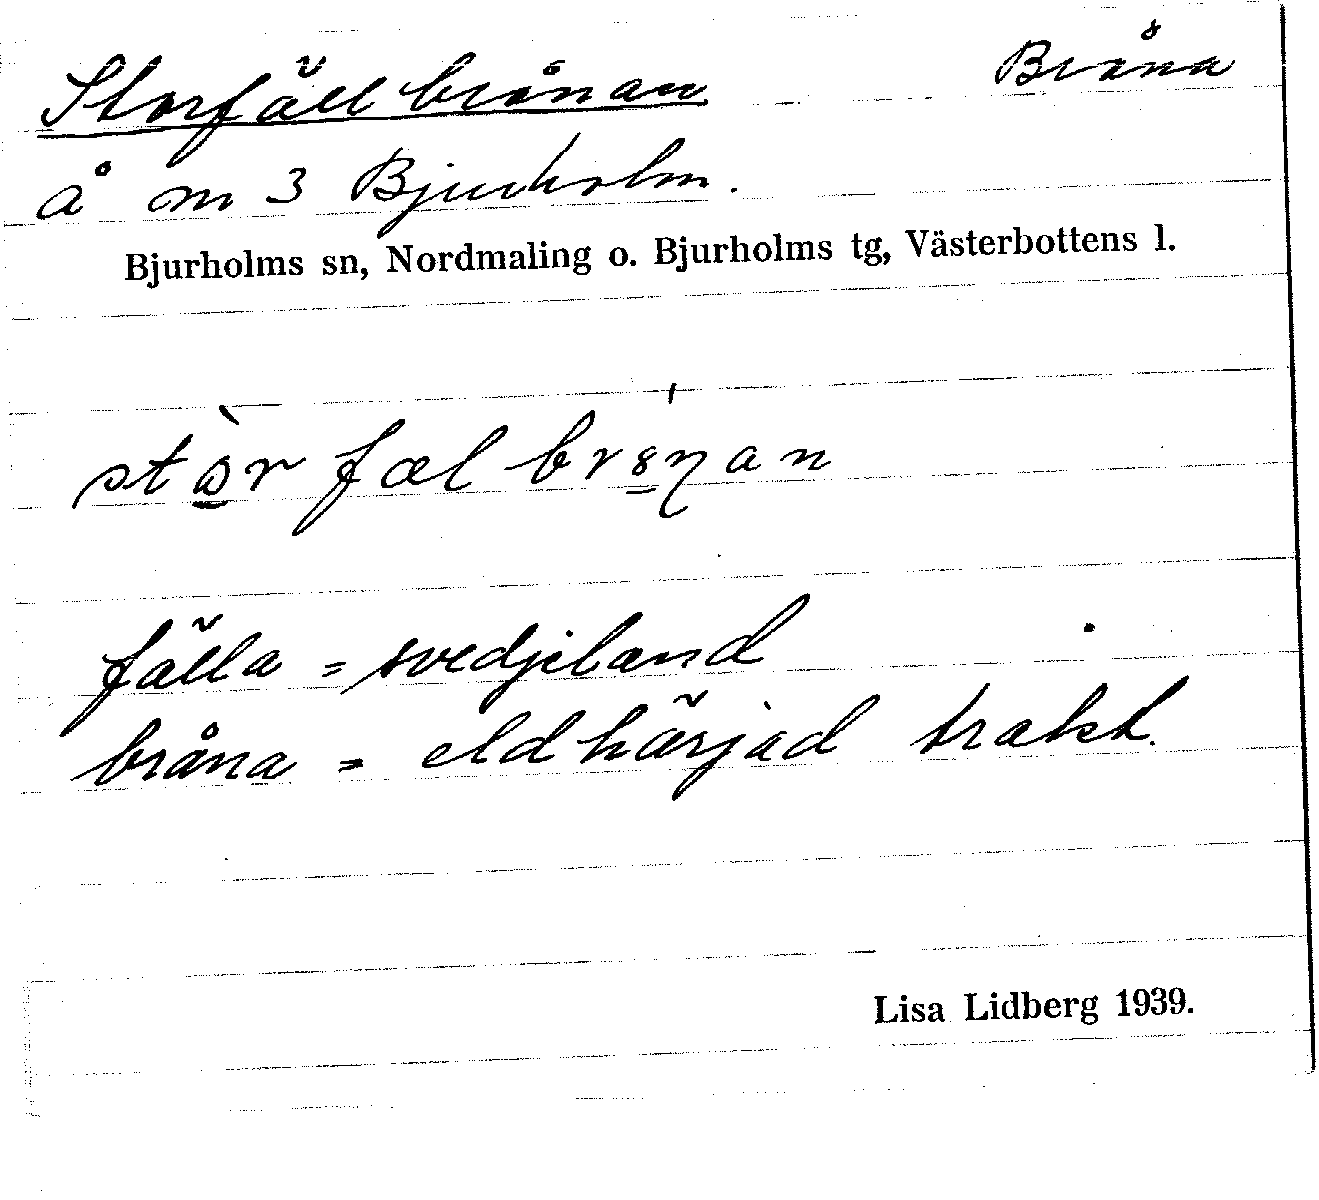 Storfällbrånan Bråna
å m 3 Bjurholm.
Bjurholms sn, Nordmaling o. Bjurholms tg, Västerbottens l.
fälla = svedjeland
bråna = eldhärjad trakt.
Lisa Lidberg 1939.